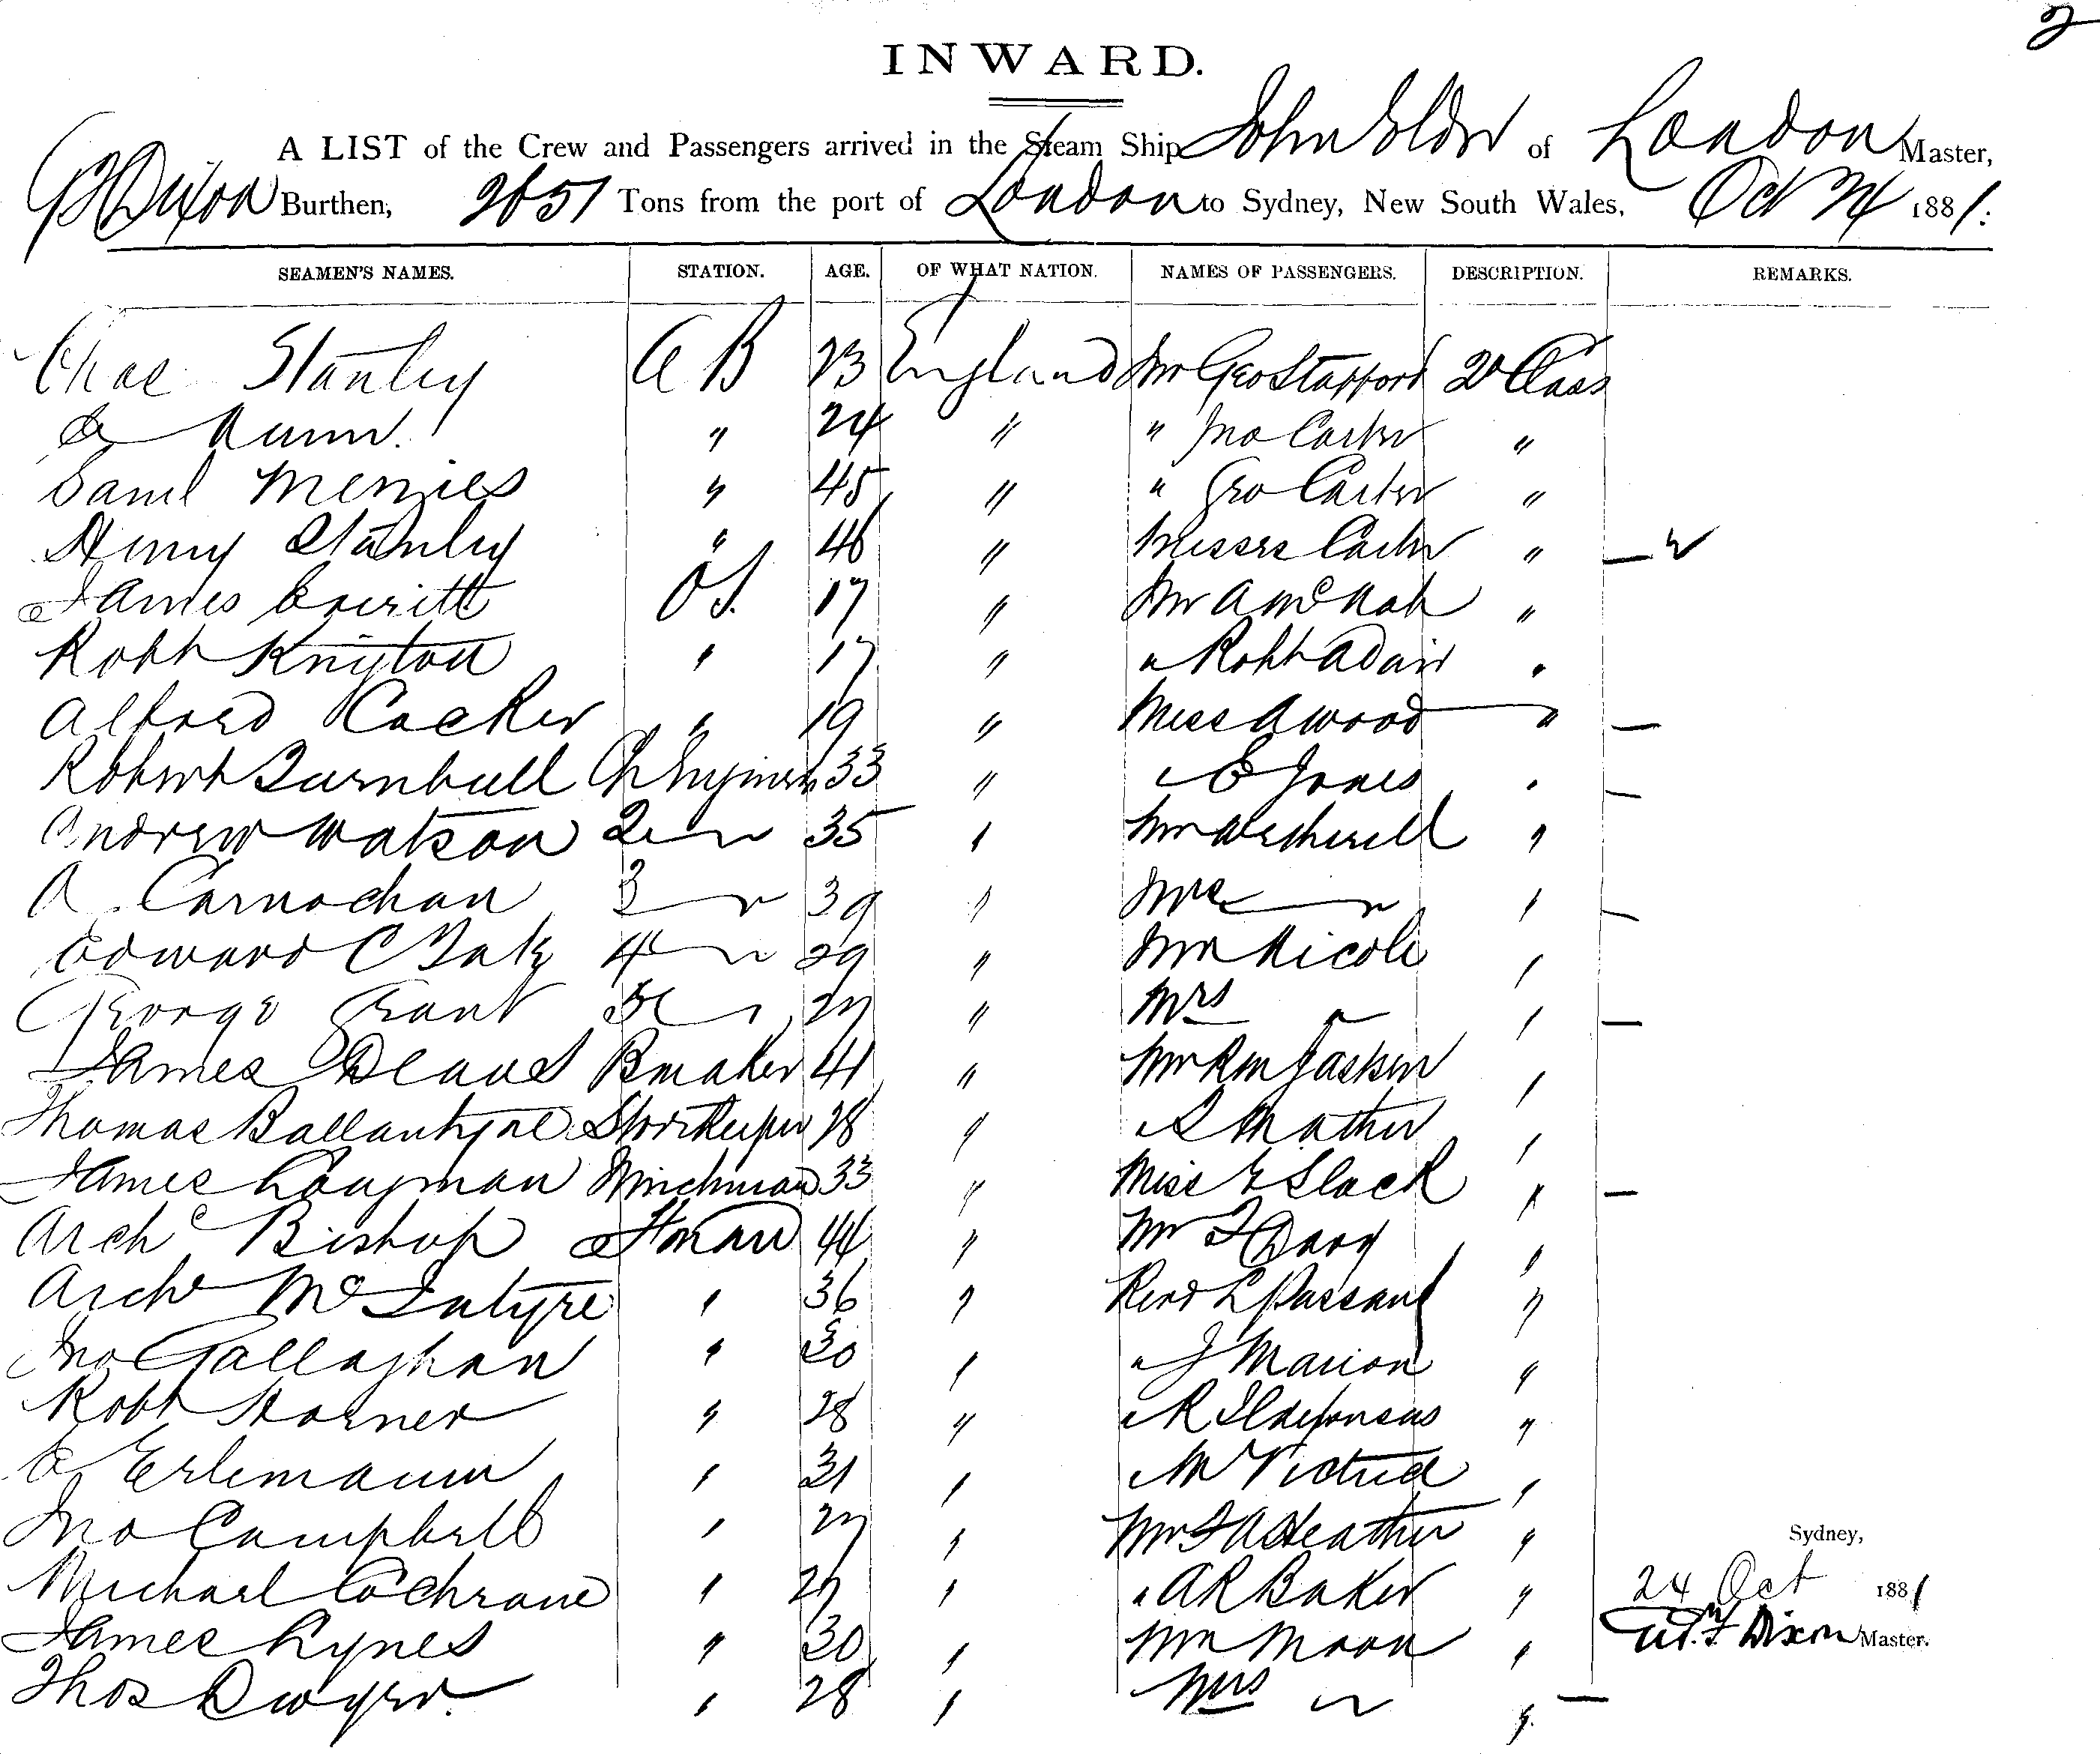 2
INWARD.
A LIST of the Crew and Passengers arrived in the Steam Ship John Elder of London Master,
Dixon Burthen, 2651 Tons from the port of London to Sydney, New South Wales, Oct 24 1881.
SEAMEN'S NAMES. STATION. AGE. OF WHAT NATION. NAMES OF PASSENGERS. DESCRIPTION. REMARKS.
Chas Stanley A B 23 England Mr Geo Stafford 2d Class
Nunn. " 24 " " Jno Carter "
Saml Menzies " 45 " " Geo Carter "
Henry Stanley " 46 " Misses Carter " —
James Everitt O.S. 17 " Mr A McNab "
Robt Knyton " 17 " " Robt Adair "
Alfred Cocker " 19 " Miss A Wood " —
Robert Turnbull Ch Engineer 33 " " E Jones " —
Andrew Watson 2 " 35 " Mr Wetherell "
A. Carnochan 3 " 39 " Mrs " " —
Edward C Tate 4 " 29 " Mr Nicole "
George Grant 5 " 27 " Mrs " " —
James Deans Bmaker 41 " Mr Rm Jasker "
Thomas Ballantyne Storekeeper 28 " " Mather "
James Chapman Winchman 33 " Miss E Slack " —
Arch Bishop 44 " Mr "
Archd McIntyre " 36 " Revd L Passant "
Jno Gallaghan " 30 " " J Marion "
Robt Horner " 28 " " R Ildefonsus "
Erlemann " 31 " " M "
Jno Campbell " 27 " Mr Heather "
Sydney,
Michael Cochrane " 27 " " A R Baker " 24 Oct 1881
James Lynes " 30 " Mr Moon " Dixon Master.
Thos Dwyer. " 28 " Mrs " " —